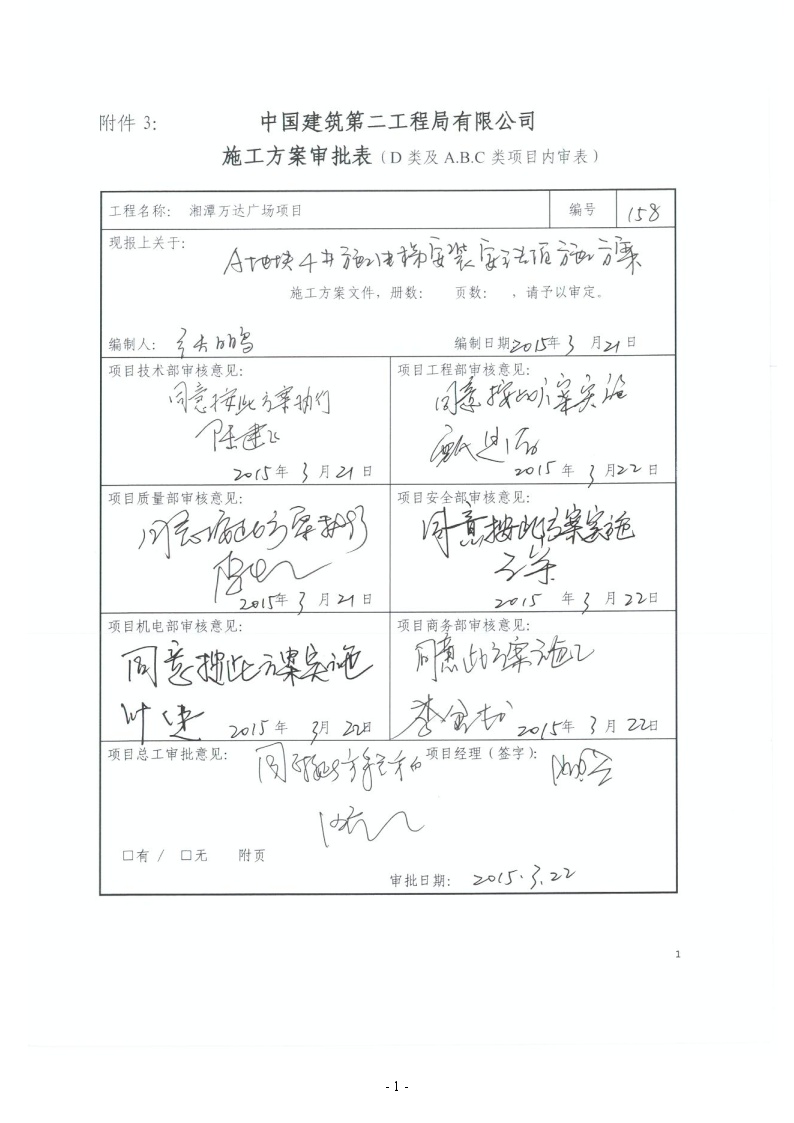 附件 3:
中国建筑第二工程局有限公司
施工方案审批表（D 类及 A.B.C 类项目内审表）
工程名称: 湘潭万达广场项目 编号 158
现报上关于:
A地块4#施工电梯安装安全专项施工方案
施工方案文件，册数: 页数: ，请予以审定。
编制人:
编制日期2015年3月21日
项目技术部审核意见: 项目工程部审核意见:
同意按此方案执行 同意按此方案实施
陈建飞
2015年3月21日 2015年3月22日
项目质量部审核意见: 项目安全部审核意见:
同意按此方案执行 同意按此方案实施
2015年3月21日 2015年3月22日
项目机电部审核意见: 项目商务部审核意见:
同意按此方案实施 同意此方案施工
叶
2015年3月22日 2015年3月22日
项目总工审批意见: 项目经理（签字）:
□有 / □无 附页
审批日期: 2015.3.22
1
- 1 -